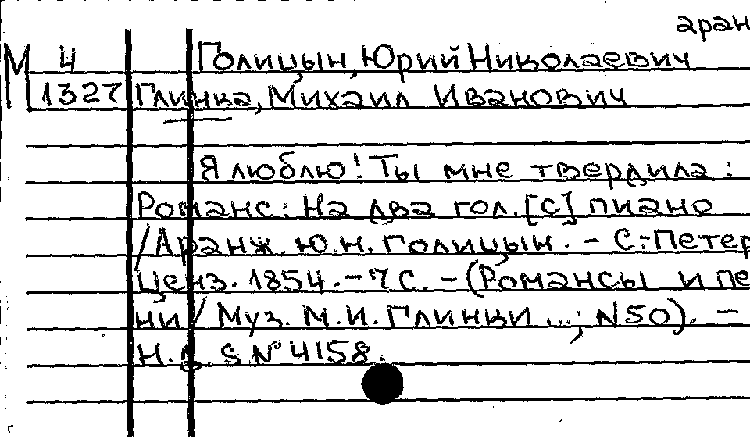 аран
М 4 Голицын, Юрий Николаевич
1327 Глинка, Михаил Иванович
Я люблю! Ты мне твердила:
Романс: На два гол. [с] пиано
/Аранж. Ю.Н. Голицын. - С.-Петер
Ценз. 1854. - 7 с. - (Романсы и пе
ни / Муз. М.И. Глинки ...; N50). -
Н.д. S.N° 4158.